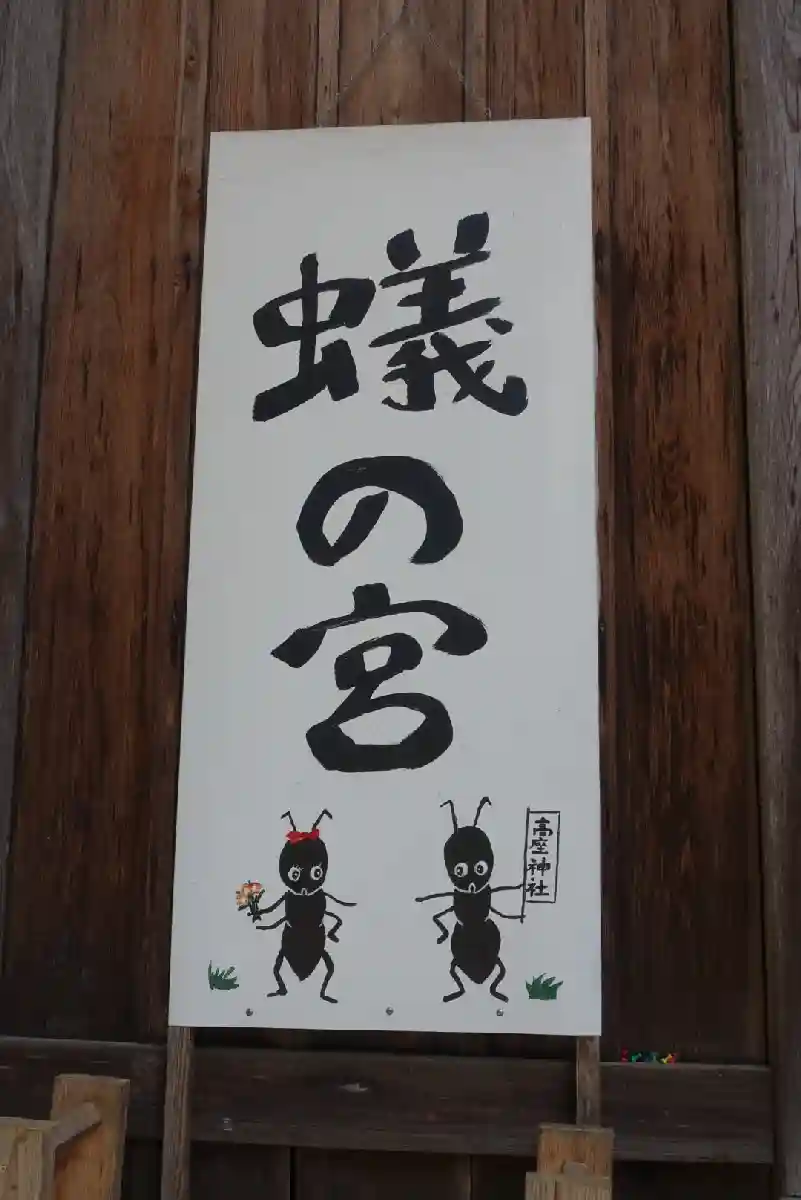 蟻の宮
高座神社